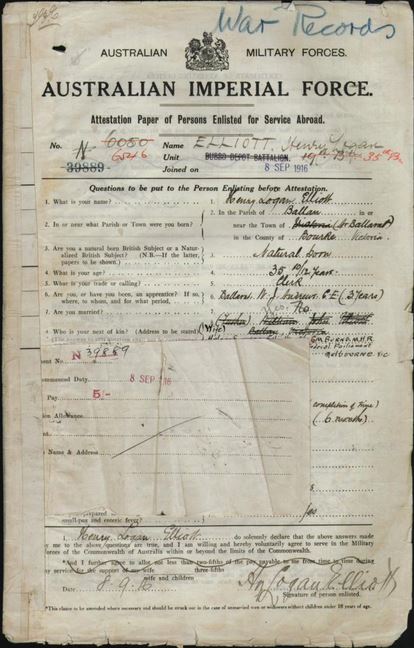 War Records
AUSTRALIAN MILITARY FORCES.
AUSTRALIAN IMPERIAL FORCE.
Attestation Paper of Persons Enlisted for Service Abroad.
No. N 6080 6546 39889 Name ELLIOTT, Henry Logan
Unit DUBBO DEPOT BATTALION. 19th Bn. 35th Bn
Joined on 8 SEP 1916
Questions to be put to the Person Enlisting before Attestation.
1. What is your name? 1. Henry Logan Elliott
2. In or near what Parish or Town were you born? 2. In the Parish of Ballan in or
near the Town of (Nr Ballarat)
in the County of Bourke Victoria
3. Are you a natural born British Subject or a Natur-
alized British Subject? (N.B.—If the latter,
papers to be shown.) 3. Natural born
4. What is your age? 4. 35 10/12 years
5. What is your trade or calling? 5. Clerk
6. Are you, or have you been, an apprentice? If so,
where, to whom, and for what period. 6. Ballarat W. J. Andrew C.E (3 years)
7. Are you married? 7. No
8. Who is your next of kin? (Address to be stated) 8. (Father) William John Elliott
(Wife) Ballan Victoria
Federal Parliament
MELBOURNE. VIC
N 39889
Commenced Duty. 8 SEP 16
Pay 5/-
Name & Address
completion of Time)
(6 months)
small-pox and enteric fever? Yes
I, Henry Logan Elliott do solemnly declare that the above answers made
by me to the above questions are true, and I am willing and hereby voluntarily agree to serve in the Military
Forces of the Commonwealth of Australia within or beyond the limits of the Commonwealth.
*And I further agree to allot not less than two-fifths of the pay payable to me from time to time during
three-fifths
my service for the support of my wife
wife and children
Date 8.9.16 Hy Logan Elliott
Signature of person enlisted.
*This clause to be amended where necessary and should be struck out in the case of unmarried men or widowers without children under 18 years of age.